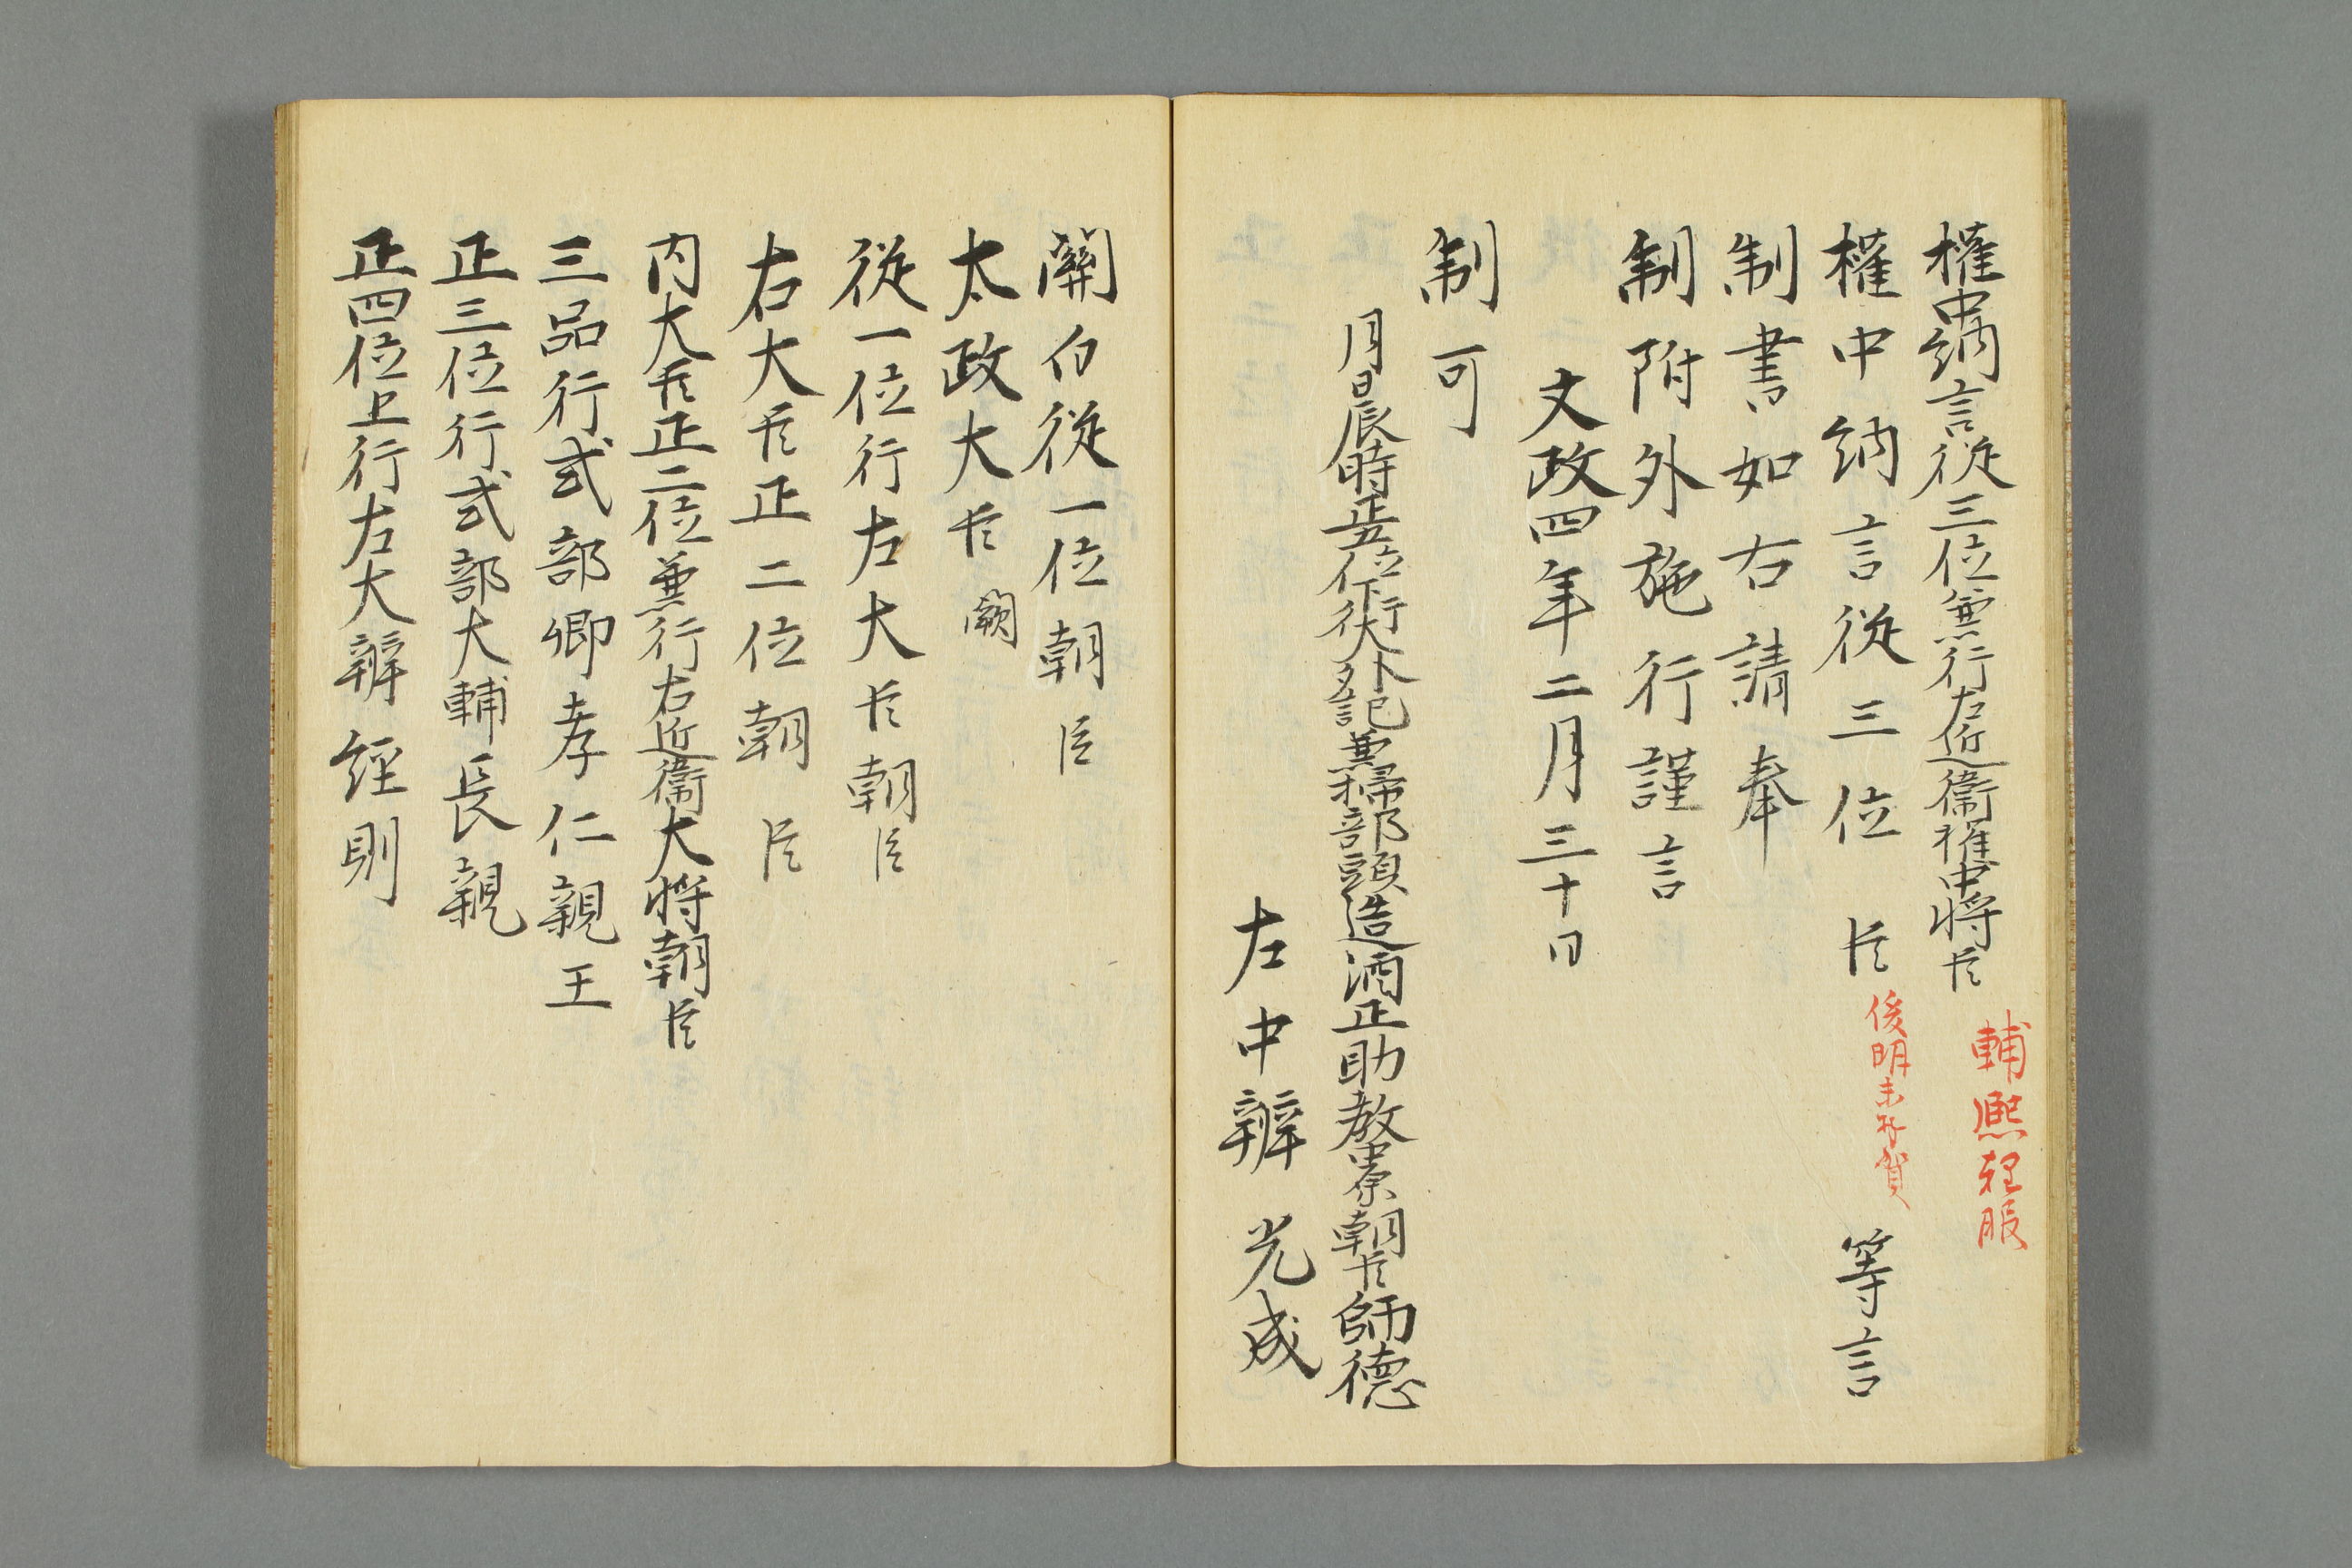 權中納言從三位兼行左近衞權中將臣 輔熙 軽服
權中納言從三位 臣 俊明 未拝賀 等言
制書如右請奉
制附外施行謹言
文政四年二月三十日
制可
月日辰時正五位下行大外記兼掃部頭造酒正助教中原朝臣師德
左中辨光成
關白從一位朝臣
太政大臣 闕
從一位行左大臣朝臣
右大臣正二位朝臣
内大臣正二位兼行右近衞大將朝臣
三品行式部卿孝仁親王
正三位行式部大輔長親
正四位上行左大辨經則